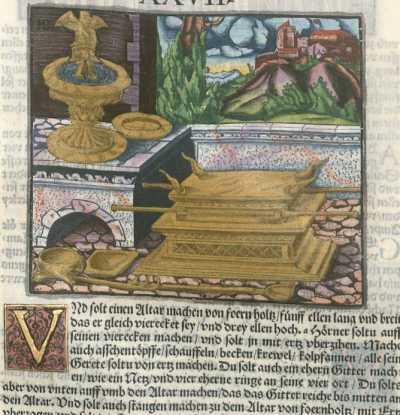 XXVII.
VNd solt einen Altar machen von foern holtz/ fünff ellen lang vnd breit
das er gleich vierecket sey/ vnd drey ellen hoch. a Hörner soltu auff
seinen vierecken machen/ vnd solt jn mit ertz vberzihen. Mache
auch asschentöpffe/ schauffeln/ becken/ krewel/ kolpfannen/ alle sein
Gerete soltu von ertz machen. Du solt auch ein ehern Gitter mach
en/ wie ein Netz/ vnd vier eherne ringe an seine vier ort/ Du solts
aber von vnten auff vmb den Altar machen/ das das Gitter reiche bis mitten an
den Altar. Vnd solt auch stangen machen zu dem Altar von foernholtz/ mit ertz